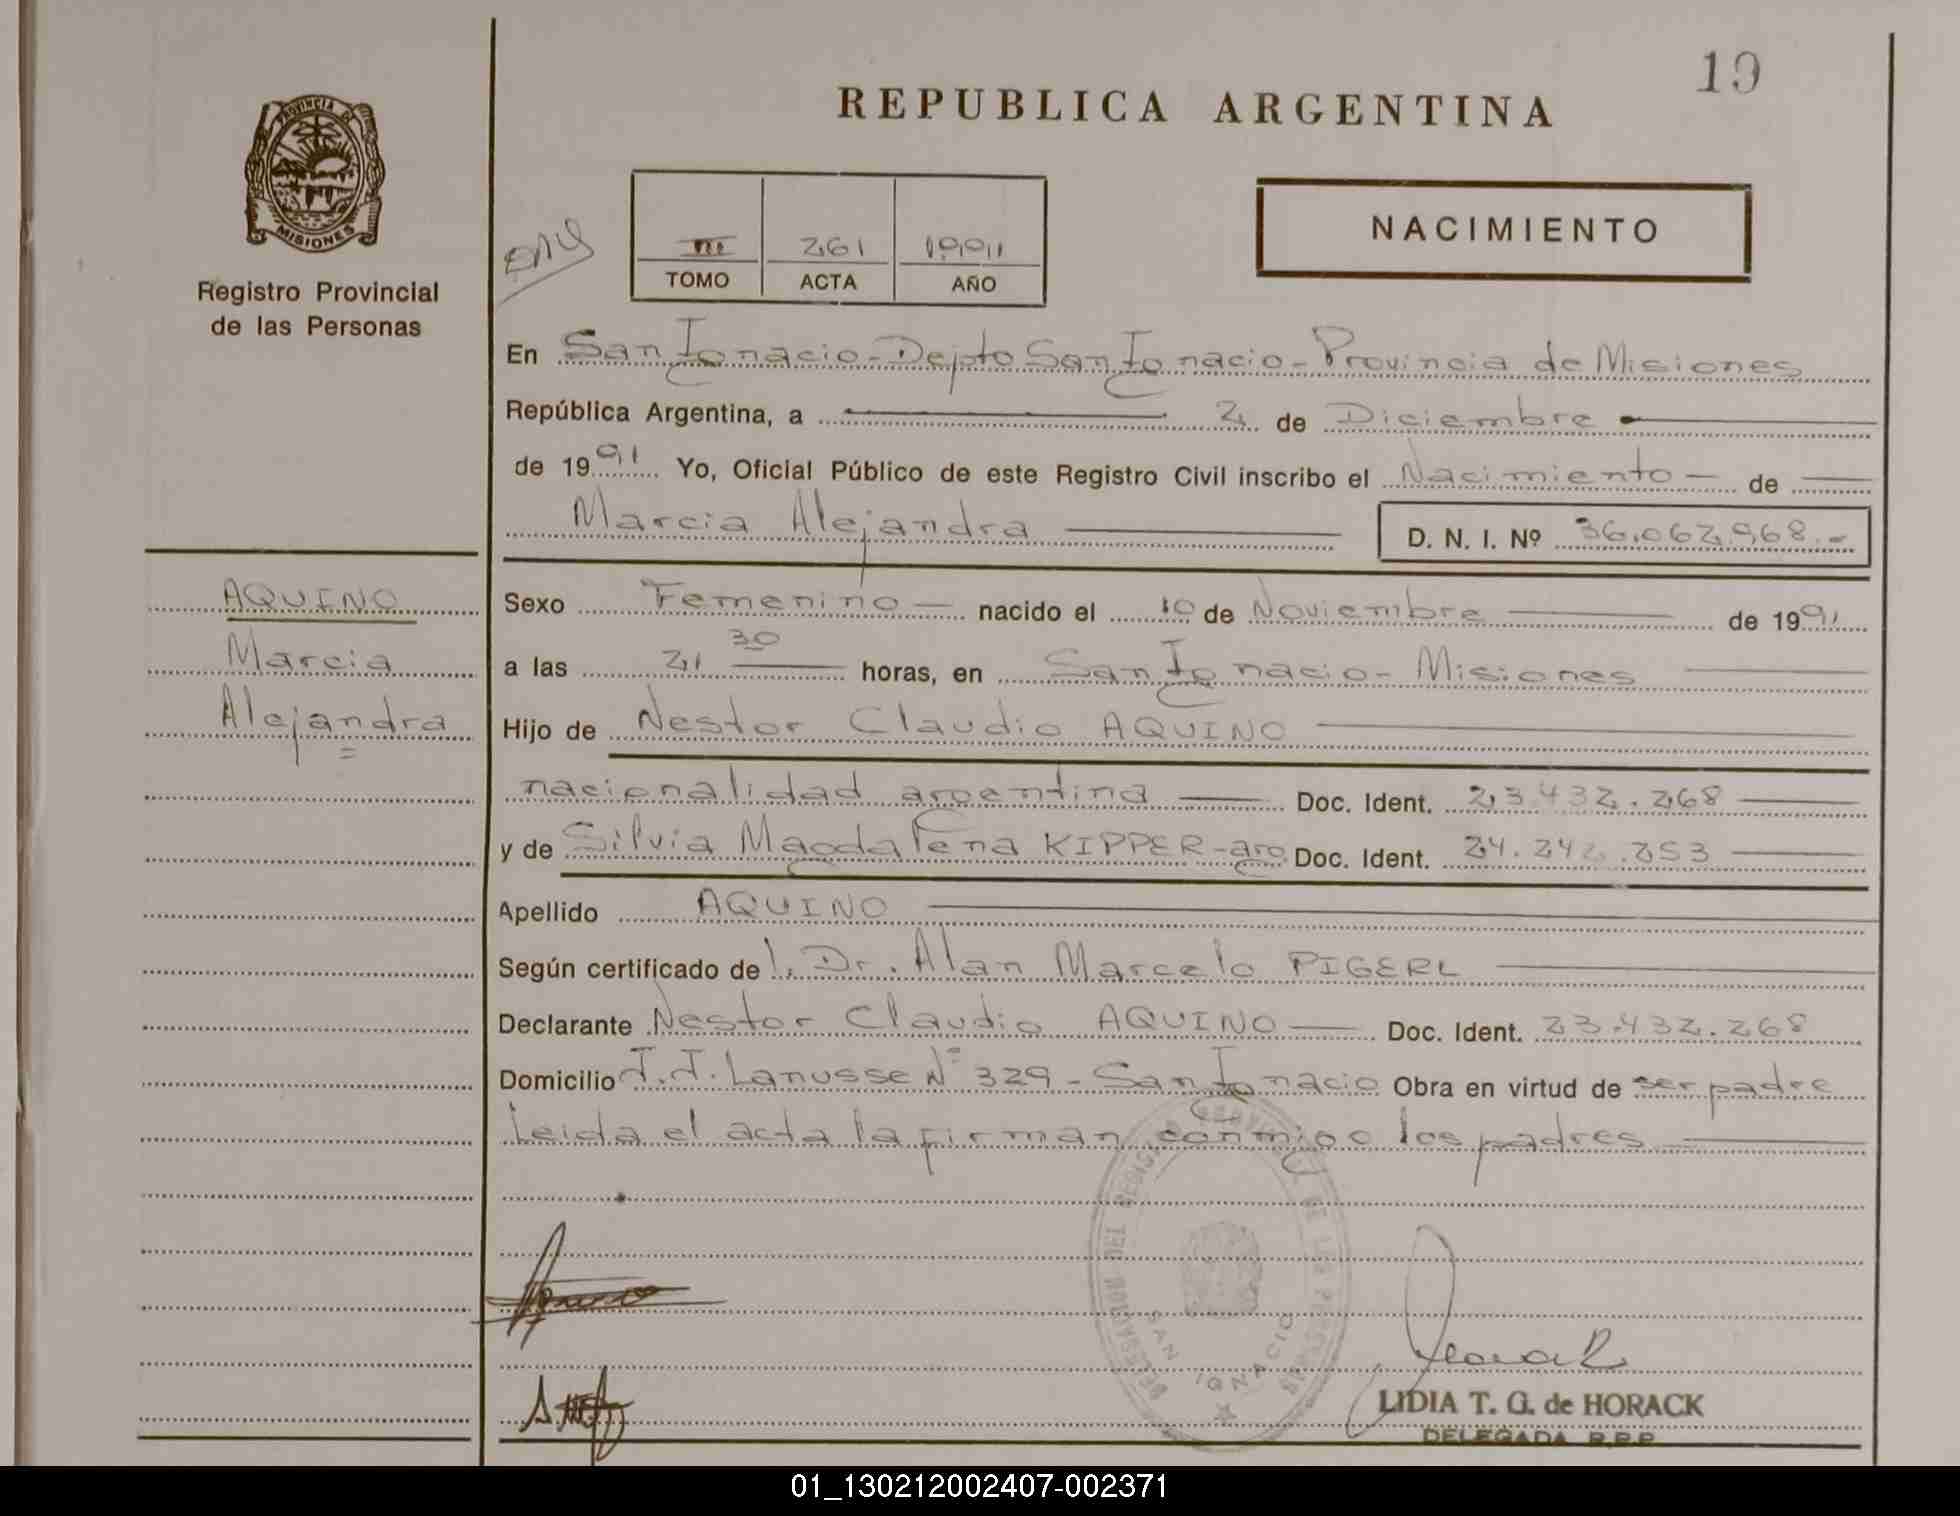 19
REPUBLICA ARGENTINA
PROVINCIA DE
MISIONES
Registro Provincial
de las Personas
III 261 1991
TOMO ACTA AÑO
NACIMIENTO
En San Ignacio - Depto San Ignacio - Provincia de Misiones
República Argentina, a 2 de Diciembre
de 1991 Yo, Oficial Público de este Registro Civil inscribo el Nacimiento - de
Marcia Alejandra D. N. I. Nº 36.062.968.-
AQUINO
Marcia
Alejandra
Sexo Femenino - nacido el 10 de Noviembre de 1991
a las 21 30 horas, en San Ignacio - Misiones
Hijo de Nestor Claudio AQUINO
nacionalidad argentina Doc. Ident. 23.432.268
y de Silvia Magdalena KIPPER - arg Doc. Ident. 24.242.253
Apellido AQUINO
Según certificado de l. Dr. Alan Marcelo PIGERL
Declarante Nestor Claudio AQUINO Doc. Ident. 23.432.268
Domicilio J.J. Lanusse Nº 329 - San Ignacio Obra en virtud de ser padre
Leida el acta la firman conmigo los padres
SAN IGNACIO
LIDIA T. G. de HORACK
DELEGADA R.P.P.
01_130212002407-002371